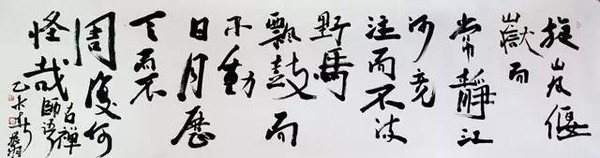 旋岚偃
嶽而
常靜江
河竞
注而不流
野馬
飄鼓而
不動
日月歷
天而不
周復何
怪哉
古禅
師语
乙未春